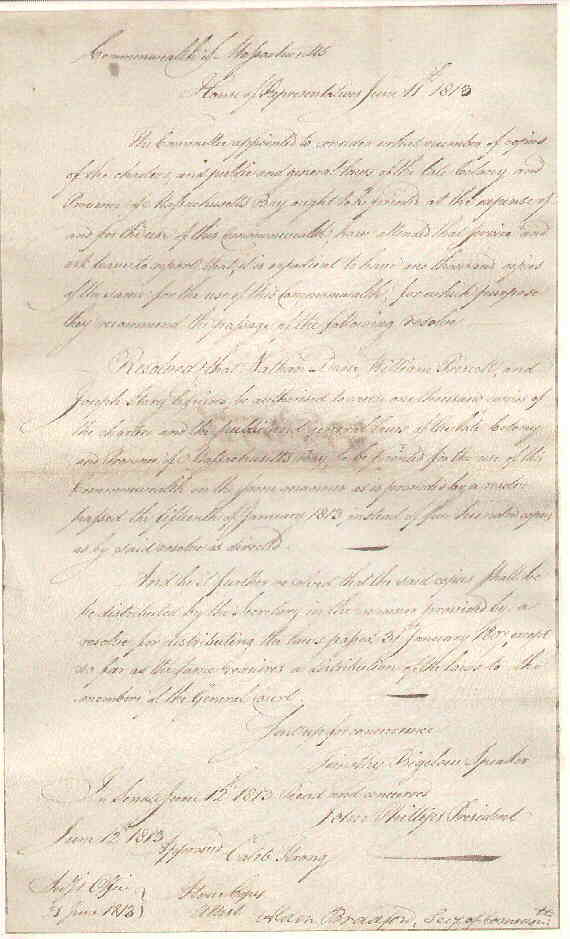 Commonwealth of Massachusetts
House of Representatives June 11th 1813
The Committee appointed to consider what number of copies
of the charters, and public and general laws of the late Colony and
Province of Massachusetts Bay ought to be printed at the expense of
and for the use of this Commonwealth, have attended that service and
ask leave to report, that it is expedient to have one thousand copies
of the same for the use of this Commonwealth, for which purpose
they recommend the passage of the following resolve
Resolved that Nathan Dane, William Prescott, and
Joseph Story Esquires be authorised to cause one thousand copies of
the charters and the public and general laws of the late Colony
and Province of Massachusetts Bay, to be printed for the use of this
Commonwealth in the same manner as is provided by a resolve
passed the fifteenth of January 1813 instead of five hundred copies
as by said resolve is directed.
And be it further resolved that the said copies shall be
be distributed by the Secretary in the manner provided by a
resolve for distributing the laws passed 31st January except
so far as the same requires a distribution of the laws to the
members of the General court
Sent up for concurrence
Timothy Bigelow Speaker
In Senate June 12th 1813 Read and concurred
John Phillips President
June 12th 1813
Approved Caleb Strong
Secy's Office
June 1813
True Copy
Attest
Alden Bradford, Secy of Commonth